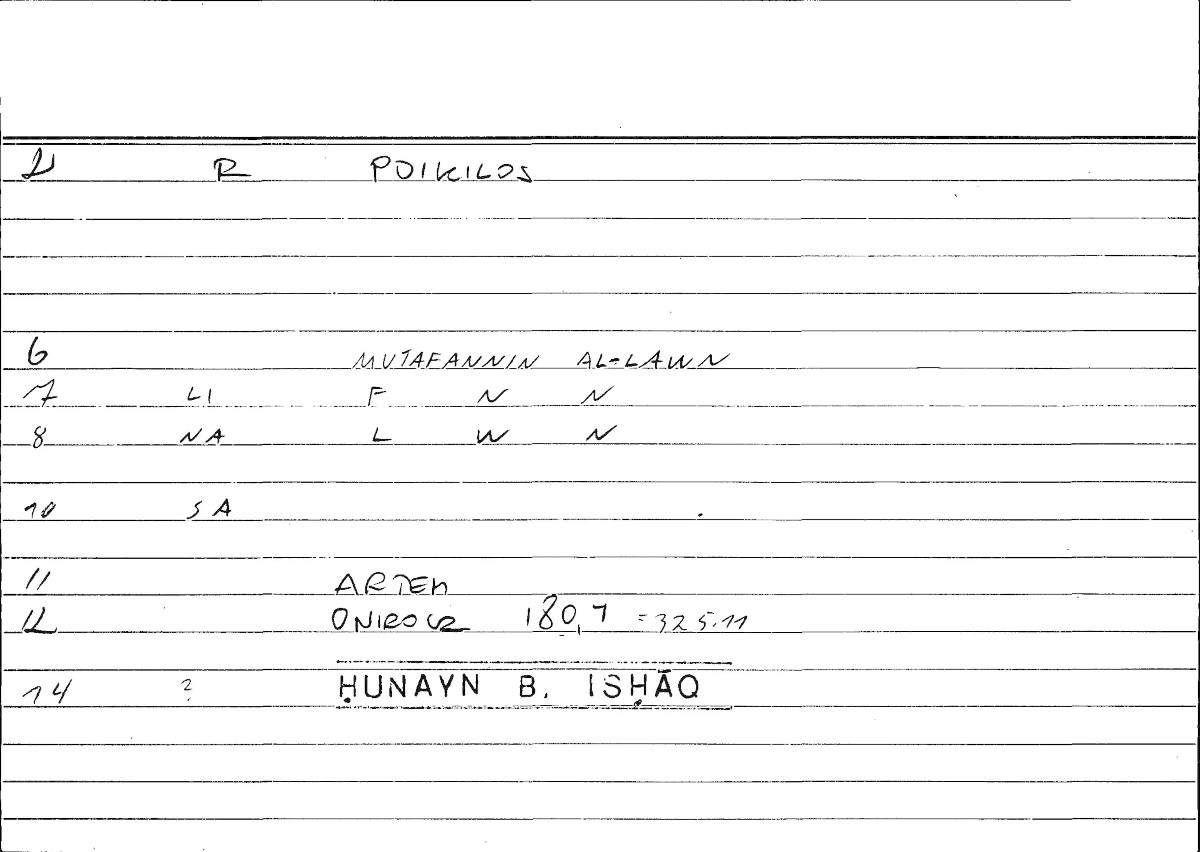 2 R POIKILOS
6 MUTAFANNIN AL-LAWN
7 LI F N N
8 NA L W N
10 SA
11 ARTEM
12 ONIROCR 180,7 =325.11
14 ? ḤUNAYN B. ISḤĀQ